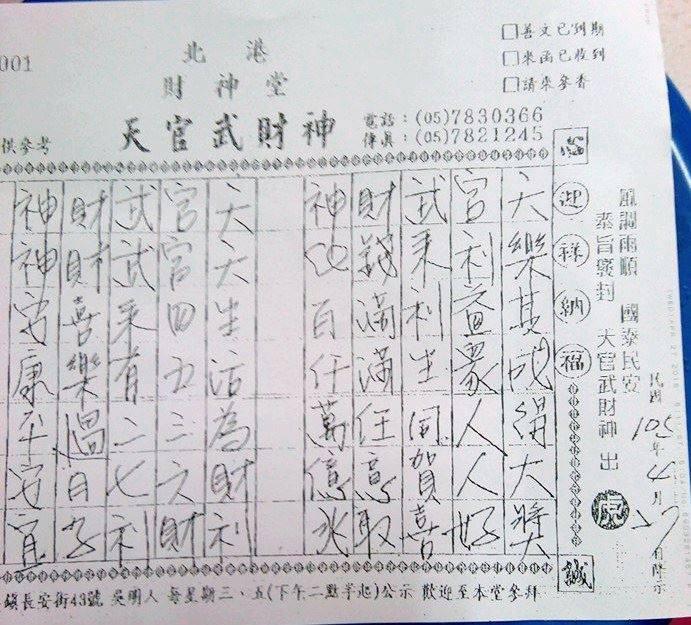 001
北港
財神堂
天官武財神
供參考
電話：(05)7830366
傳真：(05)7821245
□善文已到期
□來函已收到
□請來參香
民國105年4月27日降示
風調雨順 國泰民安
奉旨敕封 天官武財神 出
虎
迎祥納福
誠
天樂其成得大獎
官利益眾人人好
武來利生同賀喜
財錢滿滿任意取
神百仟萬億兆
天天生活為財利
官官四五三六財
武武來有二七利
財財喜樂過日子
神神安康平安宜
鎮長安街43號 吳明人 每星期三、五(下午二點半起)公示 歡迎至本堂參拜